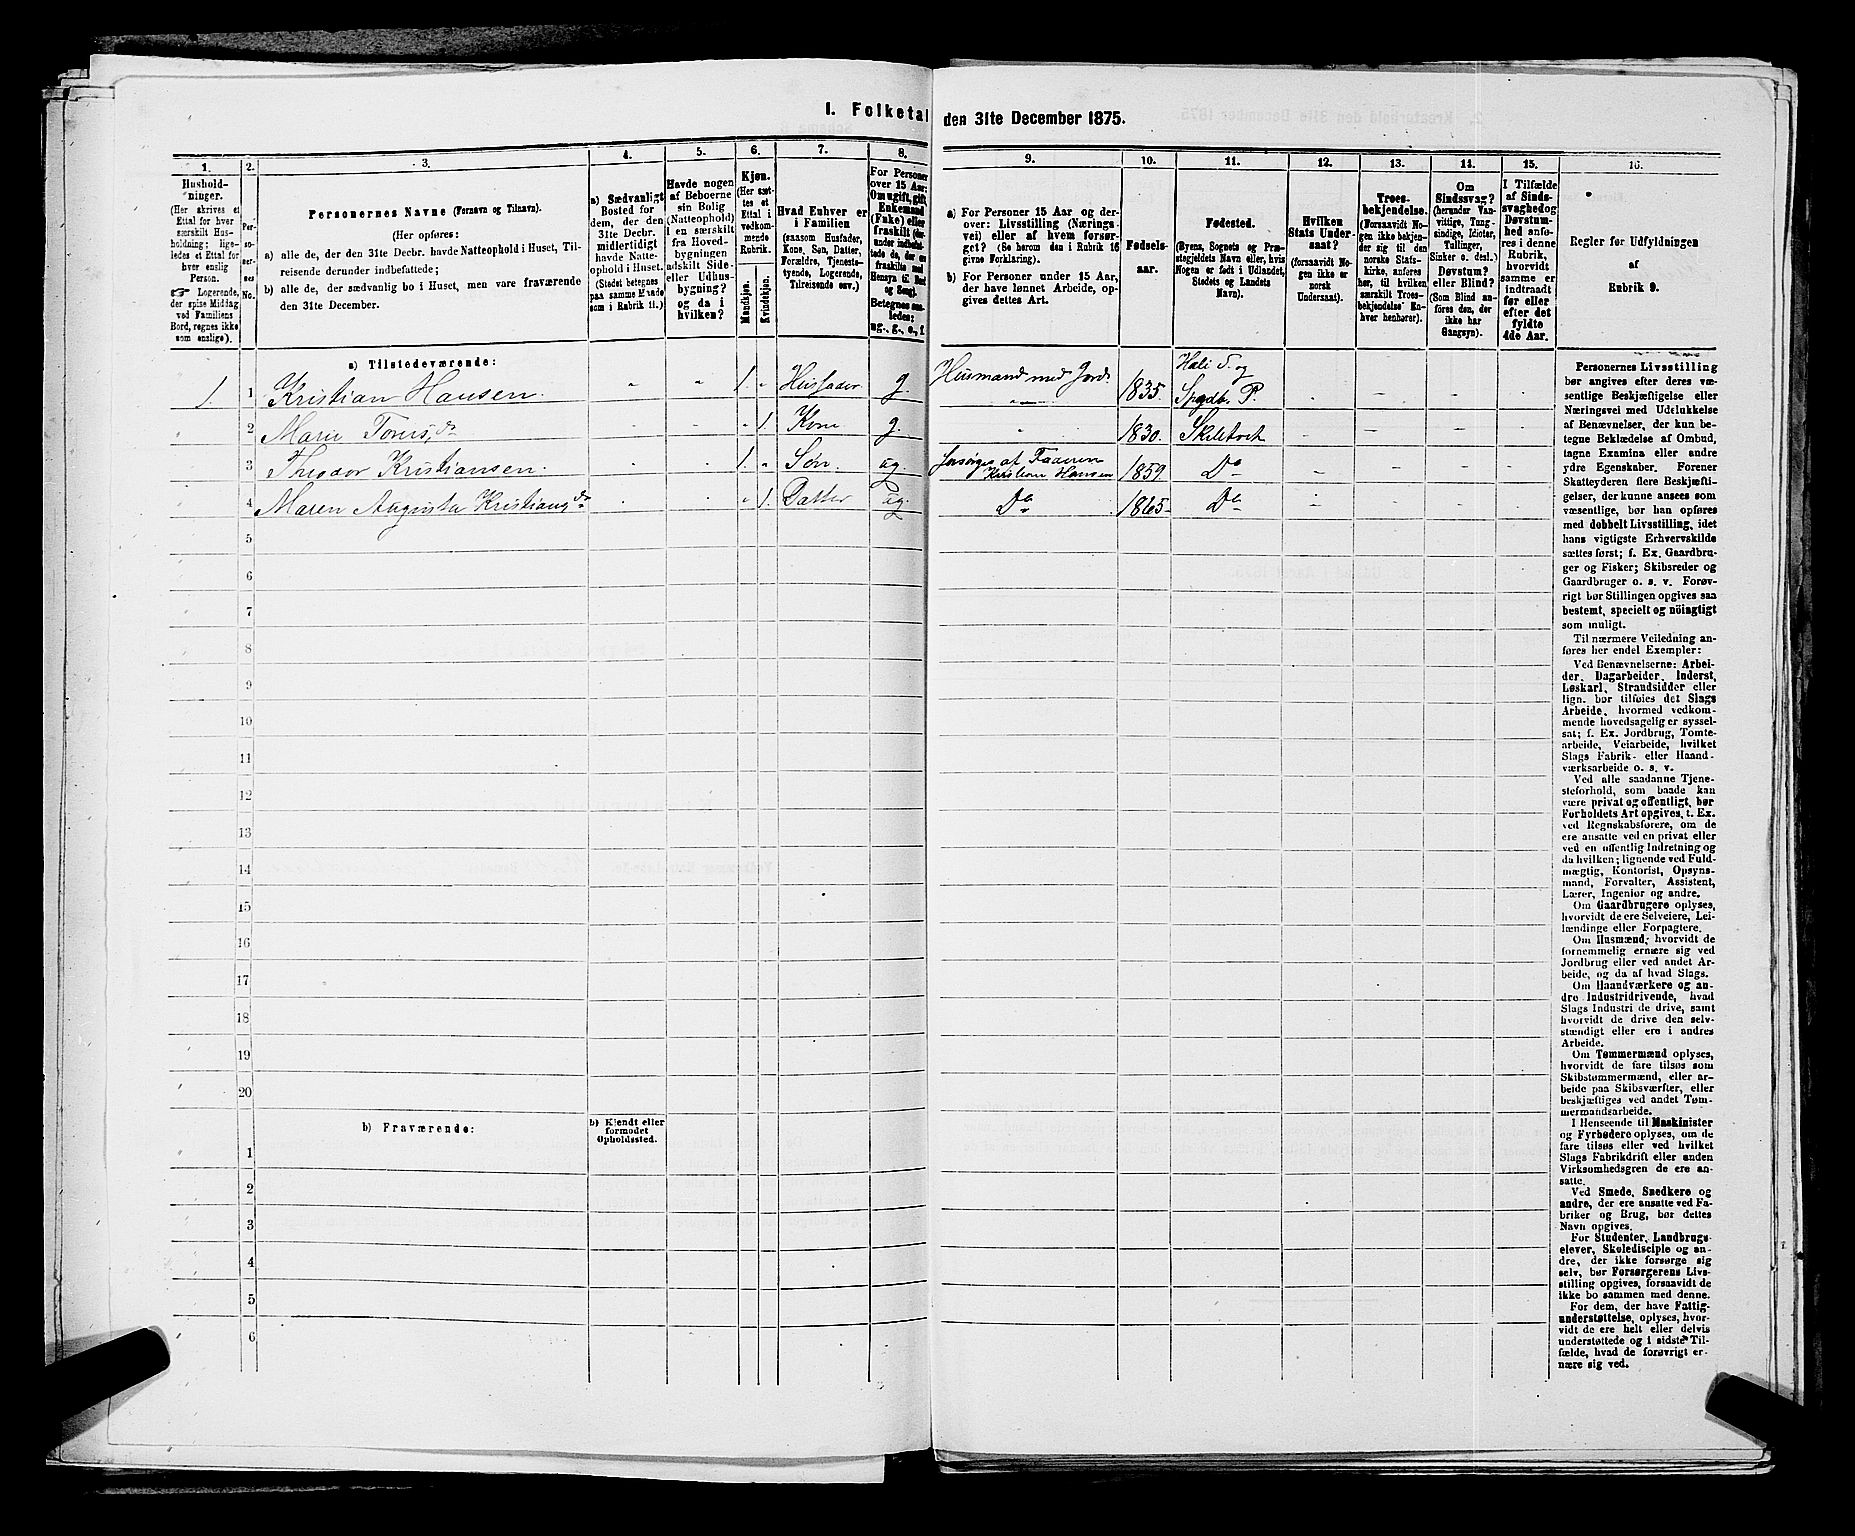 I. Folketal den 31te December 1875.
1. 2. 3. 4. 5. 6. 7. 8. 9. 10. 11. 12. 13. 14. 15. 16.
Hushold-
ninger.
(Her skrives et
Ettal for hver
særskilt Hus-
holdning; lige-
ledes et Ettal for
hver enslig
Person.
☞ Logerende,
der spise Middag
ved Familiens
Bord, regnes ikke
som enslige).
Per-
so-
ner-
nes
No.
Personernes Navne (Fornavn og Tilnavn).
(Her opføres:
a) alle de, der den 31te Decbr. havde Natteophold i Huset, Til-
reisende derunder indbefattede;
b) alle de, der sædvanlig bo i Huset, men vare fraværende
den 31te December.
a) Sædvanligt
Bosted for
dem, der den
31te Decbr.
midlertidigt
havde Natte-
ophold i Huset.
(Stedet betegnes
paa samme Maade
som i Rubrik 11.)
Havde nogen
af Beboerne
sin Bolig
(Natteophold)
i en særskilt
fra Hoved-
bygningen
adskilt Side-
eller Udhus-
bygning?
og da i
hvilken?
Kjøn.
(Her sæt-
tes et
Ettal i
vedkom-
mende
Rubrik.
Mandkjøn.
Kvindekjøn.
Hvad Enhver er
i Familien
(saasom Husfader,
Kone, Søn, Datter,
Forældre, Tjeneste-
tyende, Logerende,
Tilreisende osv.)
For Personer
over 15 Aar:
Om ugift, gift,
Enkemand
(Enke) eller
fraskilt (der-
under indbefat-
tede de, der ere
fraskilte med
Hensyn til Bord
og Seng).
Betegnes saa-
ledes:
ug-, g-, e-, f.
a) For Personer 15 Aar og der-
over: Livsstilling (Nærings-
vei) eller af hvem forsør-
get? (Se herom den i Rubrik 16
givne Forklaring).
b) For Personer under 15 Aar,
der have lønnet Arbeide, op-
gives dettes Art.
Fødsels-
aar.
Fødested.
(Byens, Sognets og Præ-
stegjeldets Navn eller, hvis
Nogen er født i Udlandet,
Stedets og Landets
Navn).
Hvilken
Stats Under-
saat?
(forsaavidt No-
gen ikke er
norsk
Undersaat).
Troes-
bekjendelse.
(Forsaavidt No-
gen ikke bekjen-
der sig til den
norske Stats-
kirke, anføres
her, til hvilken
særskilt Troes-
bekjendelse En-
hver henhører).
Om
Sindssvag?
(herunder Van-
vittige, Tung-
sindige, Idioter,
Tullinger,
Sinker o. desl.)
Døvstum?
eller Blind?
(Som Blind an-
føres den, der
ikke har
Gangsyn).
I Tilfælde
af Sinds-
svaghed og
Døvstum-
hed anfø-
res i denne
Rubrik,
hvorvidt
samme er
indtraadt
før eller
efter det
fyldte
4de Aar.
Regler for Udfyldningen
af
Rubrik 9.
a) Tilstedeværende:
1. 1 Kristian Hansen. 1. Husfader g. Husmand med Jord. 1835.
2 Marie 1. Kone g. 1830.
3 Theodor Kristiansen. 1. Søn ug forsørges af Faderen Kristian Hansen 1859. Do
4 Maren Augusta 1. Datter ug. Do 1865 Do
5
6
7
8
9
10
11
12
13
14
15
16
17
18
19
20
b) Fraværende:
b) Kjendt eller
formodet
Opholdssted.
1
2
3
4
5
6
Personernes Livsstilling
bør angives efter deres væ-
sentlige Beskjæftigelse eller
Næringsvei med Udelukkelse
af Benævnelser, der kun be-
tegne Beklædelse af Ombud,
tagne Examina eller andre
ydre Egenskaber. Forener
Skatteyderen flere Beskjæfti-
gelser, der kunne ansees som
væsentlige, bør han opføres
med dobbelt Livsstilling, idet
hans vigtigste Erhvervskilde
sættes først; f. Ex. Gaardbru-
ger og Fisker; Skibsreder og
Gaardbruger o. s. v. Forøv-
rigt bør Stillingen opgives saa
bestemt, specielt og nöiagtigt
som muligt.
Til nærmere Veiledning an-
føres her endel Exempler:
Ved Benævnelserne: Arbei-
der, Dagarbeider, Inderst,
Løskarl, Strandsidder eller
lign. bør tilføies det Slags
Arbeide, hvormed vedkom-
mende hovedsagelig er syssel-
sat; f. Ex. Jordbrug, Tomte-
arbeide, Veiarbeide, hvilket
Slags Fabrik- eller Haand-
værksarbeide o. s. v.
Ved alle saadanne Tjene-
steforhold, som baade kan
være privat og offentligt, bør
Forholdets Art opgives, t. Ex.
ved Regnskabsførere, om de
ere ansatte ved en privat eller
ved en offentlig Indretning og
da hvilken; lignende ved Fuld-
mægtig, Kontorist, Opsyns-
mand, Forvalter, Assistent,
Lærer, Ingeniør og andre.
Om Gaardbrugere oplyses,
hvorvidt de ere Selveiere, Lei-
lændinge eller Forpagtere.
Om Husmænd, hvorvidt de
fornemmelig ernære sig ved
Jordbrug eller ved andet Ar-
beide, og da af hvad Slags.
Om Haandværkere og an-
dre Industridrivende, hvad
Slags Industri de drive, samt
hvorvidt de drive den selv-
stændigt eller ere i andres
Arbeide.
Om Tømmermænd oplyses,
hvorvidt de fare tilsøs som
Skibstømmermænd, eller ar-
beide paa Skibsværfter, eller
beskjæftiges ved andet Tøm-
mermandsarbeide.
I Henseende til Maskinister
og Fyrbødere oplyses, om de
fare tilsøs eller ved hvilket
Slags Fabrikdrift eller anden
Virksomhedsgren de ere an-
satte.
Ved Smede, Snedkere og
andre, der ere ansatte ved Fa-
briker og Brug, bør dettes
Navn opgives.
For Studenter, Landbrugs-
elever, Skoledisciple og an-
dre, der ikke forsørge sig
selv, bør Forsørgerens Livs-
stilling opgives, forsaavidt de
ikke bo sammen med denne.
For dem, der have Fattig-
understøttelse, oplyses, hvor-
vidt de ere helt eller delvis
understøttede og i sidste Til-
fælde, hvad de forøvrigt er-
nære sig ved.